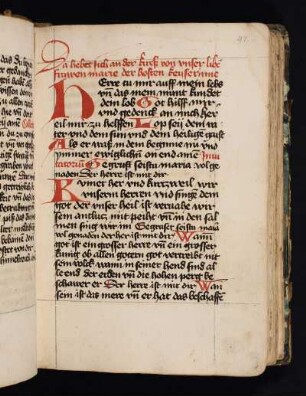 Da hebet sich an der kurß von vnser lieb
frawen marie der hosten keyserinne
Herr du mir auff mein lebs
vnd das mein munt kundet
dein lob Got hilff mir
vnd gedenck an mich her
eil mir zu helffen Lop sey dem va
ter vnd dem sun vnd dem heilige geist
Als er waß in dem beginne nu vnd
ymmer ewiglichen on end ame Inui
tatorium Gegrust seistu maria vol ge
naden Der herre ist mit dir
Kumet her vnd kurtzweil wir
vnserm herren vnd singe dem
got der vnser heil ist vertraibe wir
sein antlutz mit peiht vnd in den sal
men sing wir im Gegruset seistu maria
vol genaden der her ist mit dir Wann
got ist ein grosser herre vnd ein grosser
kunig ob allen gotern got vertreibt nit
sein volck wann in seiner hend sind al
le end der erden vnd die hohen perg be
schawet er Der herre ist mit dir Wan
sein ist das mere vnd er hat das beschaffe